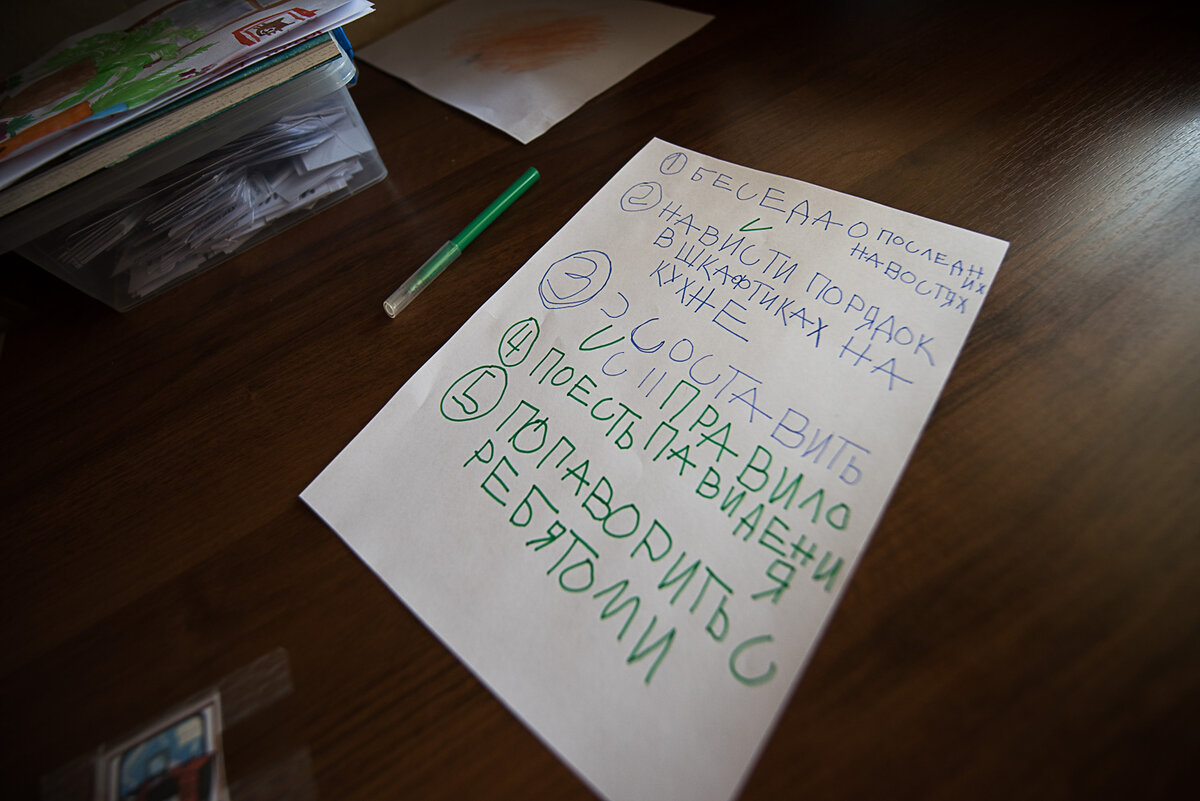 ① БЕСЕДА О ПОСЛЕДН
ИХ
НАВОСТЯХ
② НАВИСТИ ПОРЯДОК
В ШКАФТИКАХ НА
КУХНЕ
③ СОСТАВИТЬ
ПРАВИЛО
④ ПОЕСТЬ ПАВИДЕНИ
Я
⑤ ПОПАВОРИТЬ С
РЕБЯТОМИ